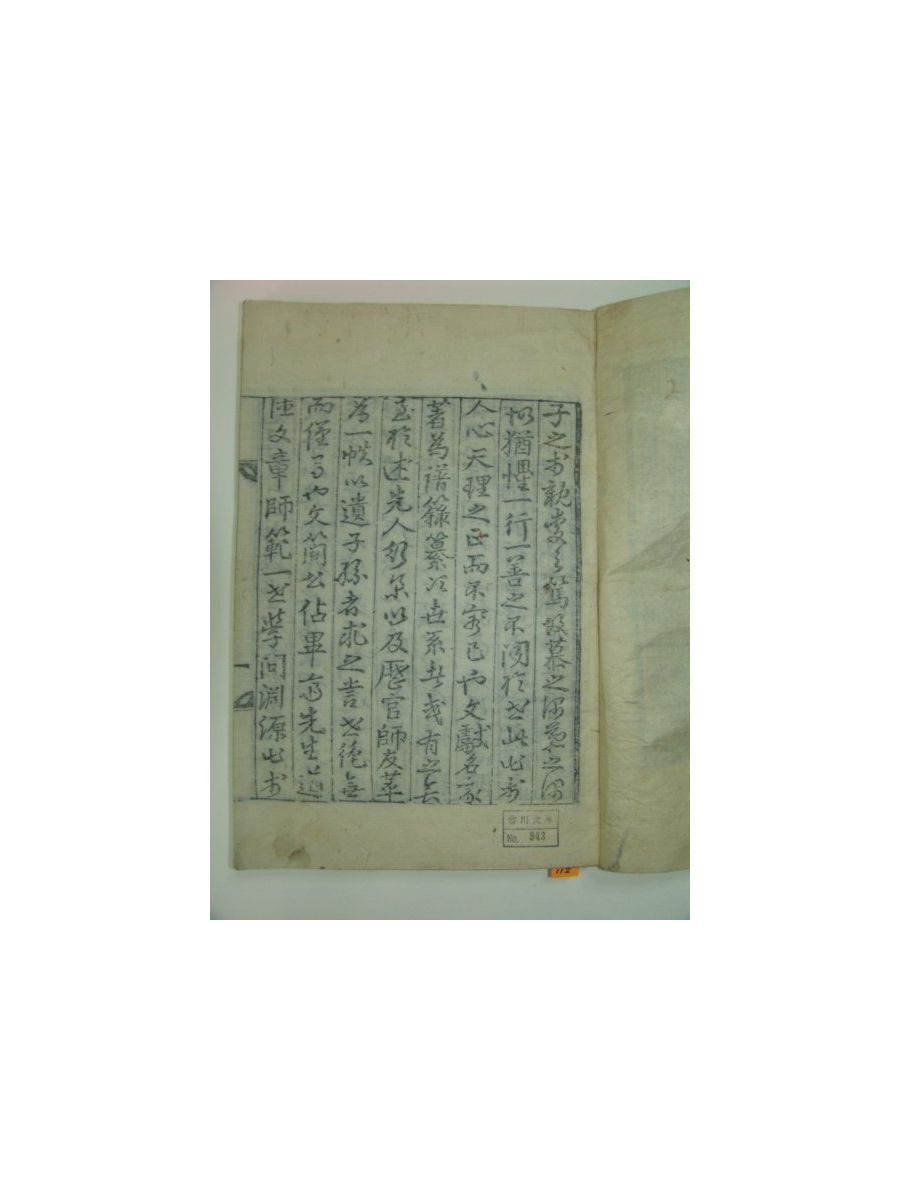 子之於親愛之篤故慕之深慕之深
恒猶懼一行一善之不聞於世此出於
人心天理之正而不容已也文獻名家
著為譜籙纂次世系者或有之矣
至於述先人行蹟以及歷官師友萃
為一帙以遺子孫者求之言世絶無
而僅有也文簡公佔畢齋先生道
德文章師範一世學問淵源出於
一
文庫
No. 943
112
2